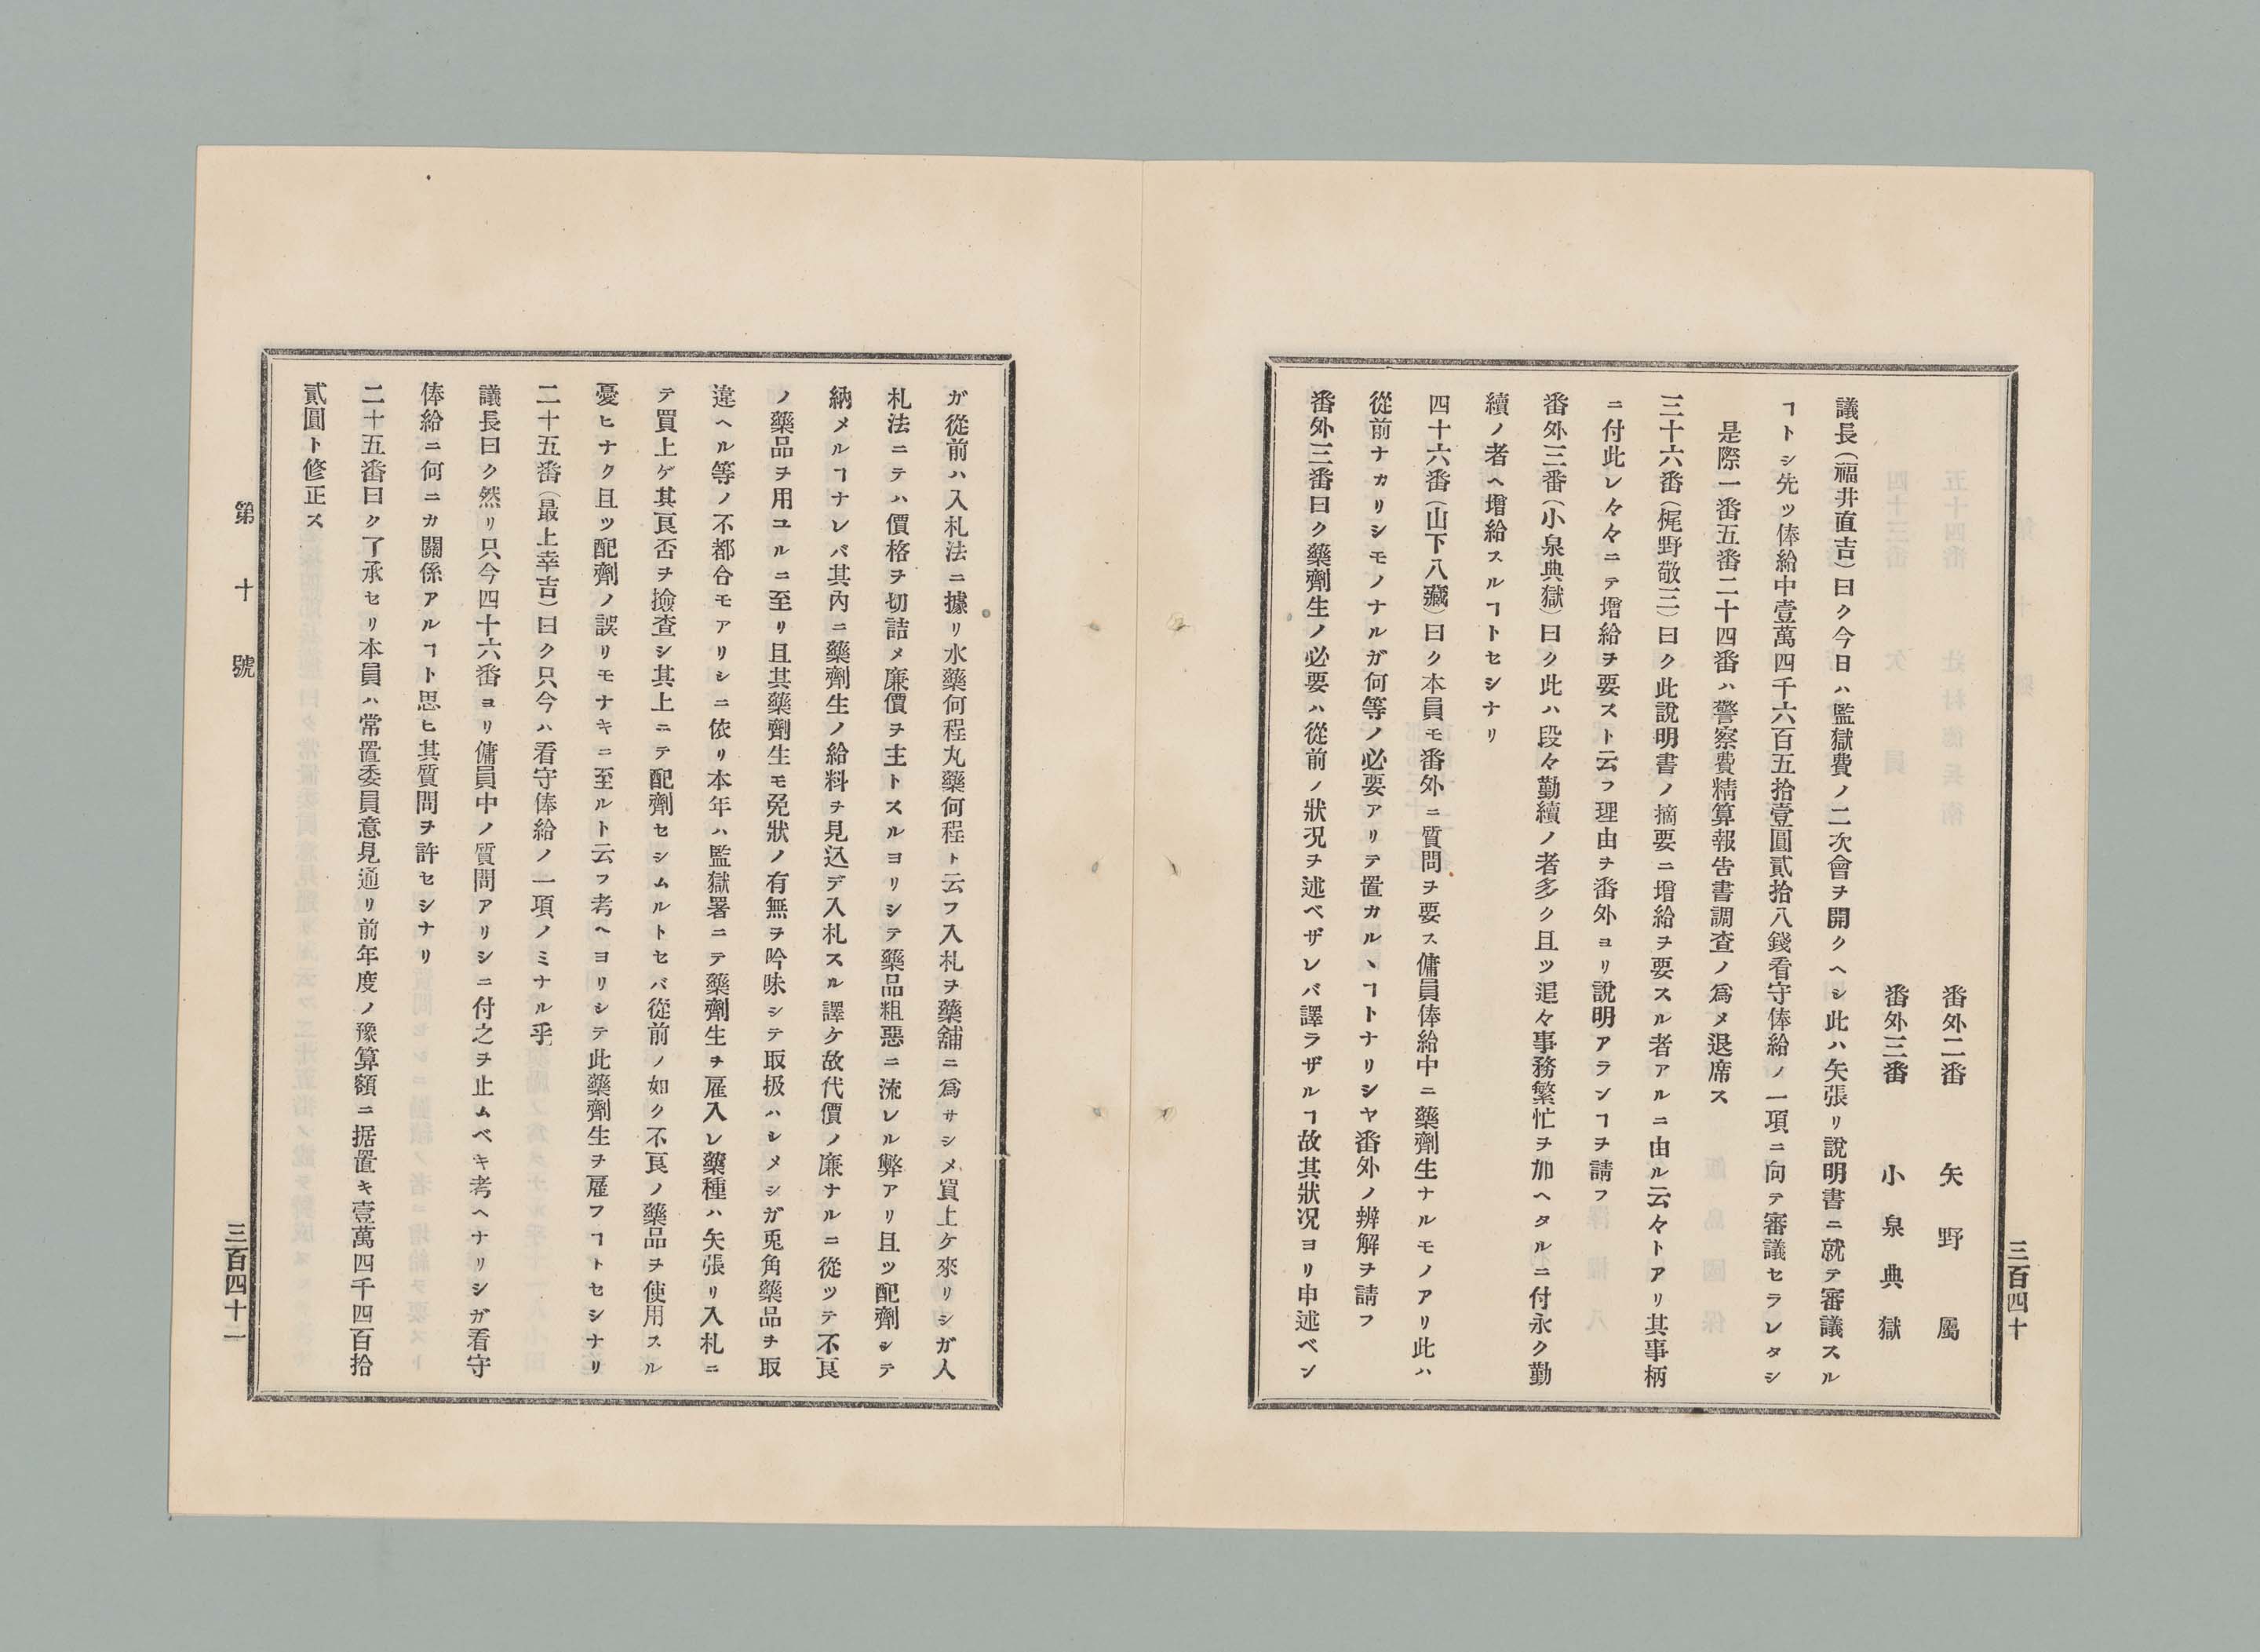 三百四十
番外二番　矢野屬
番外三番　小泉典獄
議長（福井直吉）曰ク今日ハ監獄費ノ二次會ヲ開クヘシ此ハ矢張リ說明書ニ就テ審議スル
ヿトシ先ツ俸給中壹萬四千六百五拾壹圓貳拾八錢看守俸給ノ一項ニ向テ審議セラレタシ
是際一番五番二十四番ハ警察費精算報告書調查ノ爲メ退席ス
三十六番（梶野敬三）曰ク此說明書ノ摘要ニ增給ヲ要スル者アルニ由ル云々トアリ其事柄
ニ付此レ々々ニテ增給ヲ要スト云フ理由ヲ番外ヨリ說明アランヿヲ請フ
番外三番（小泉典獄）曰ク此ハ段々勤續ノ者多ク且ツ追々事務繁忙ヲ加ヘタルニ付永ク勤
續ノ者ヘ增給スルヿトセシナリ
四十六番（山下八藏）曰ク本員モ番外ニ質問ヲ要ス傭員俸給中ニ藥劑生ナルモノアリ此ハ
從前ナカリシモノナルガ何等ノ必要アリテ置カルヽヿトナリシヤ番外ノ辨解ヲ請フ
番外三番曰ク藥劑生ノ必要ハ從前ノ狀況ヲ述ベザレバ譯ラザルヿ故其狀況ヨリ申述ベン
ガ從前ハ入札法ニ據リ水藥何程丸藥何程ト云フ入札ヲ藥舖ニ爲サシメ買上ケ來リシガ入
札法ニテハ價格ヲ切詰メ廉價ヲ主トスルヨリシテ藥品粗惡ニ流レル弊アリ且ツ配劑シテ
納メルヿナレバ其內ニ藥劑生ノ給料ヲ見込デ入札スル譯ケ故代價ノ廉ナルニ從ツテ不良
ノ藥品ヲ用ユルニ至リ且其藥劑生モ免狀ノ有無ヲ吟味シテ取扱ハシメシガ兎角藥品ヲ取
違ヘル等ノ不都合モアリシニ依リ本年ハ監獄署ニテ藥劑生ヲ雇入レ藥種ハ矢張リ入札ニ
テ買上ゲ其良否ヲ撿查シ其上ニテ配劑セシムルトセバ從前ノ如ク不良ノ藥品ヲ使用スル
憂ヒナク且ツ配劑ノ誤リモナキニ至ルト云フ考ヘヨリシテ此藥劑生ヲ雇フヿトセシナリ
二十五番（最上幸吉）曰ク只今ハ看守俸給ノ一項ノミナル乎
議長曰ク然リ只今四十六番ヨリ傭員中ノ質問アリシニ付之ヲ止ムベキ考ヘナリシガ看守
俸給ニ何ニカ關係アルヿト思ヒ其質問ヲ許セシナリ
二十五番曰ク了承セリ本員ハ常置委員意見通リ前年度ノ豫算額ニ据置キ壹萬四千四百拾
貳圓ト修正ス
第十號
三百四十一